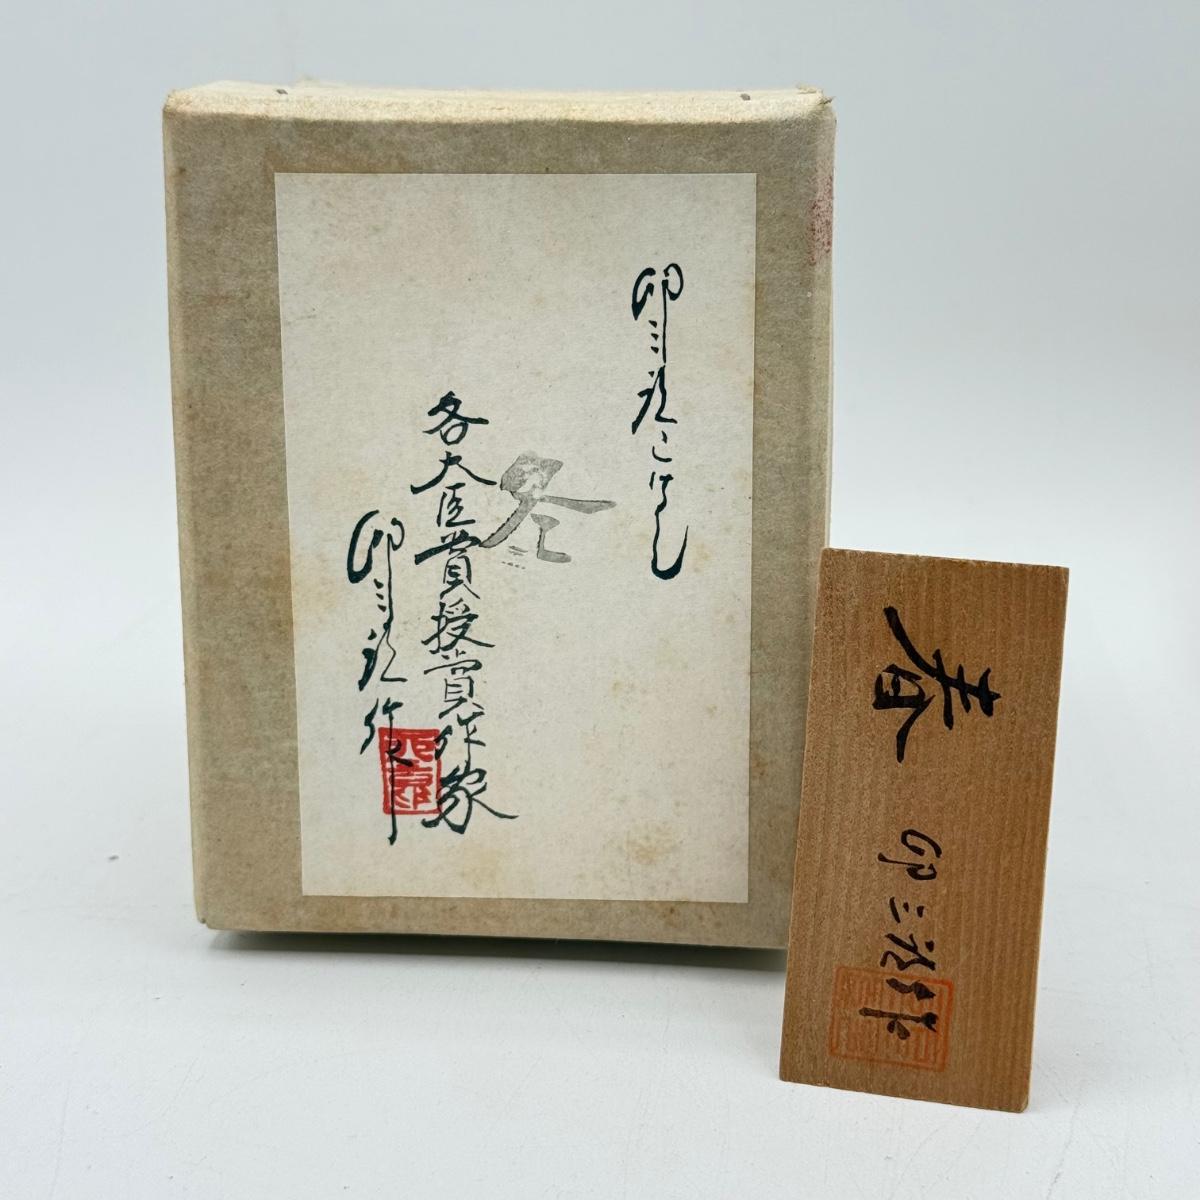 卯三郎こけし
冬
各大臣賞授賞作家
卯三郎作
春 卯三郎作